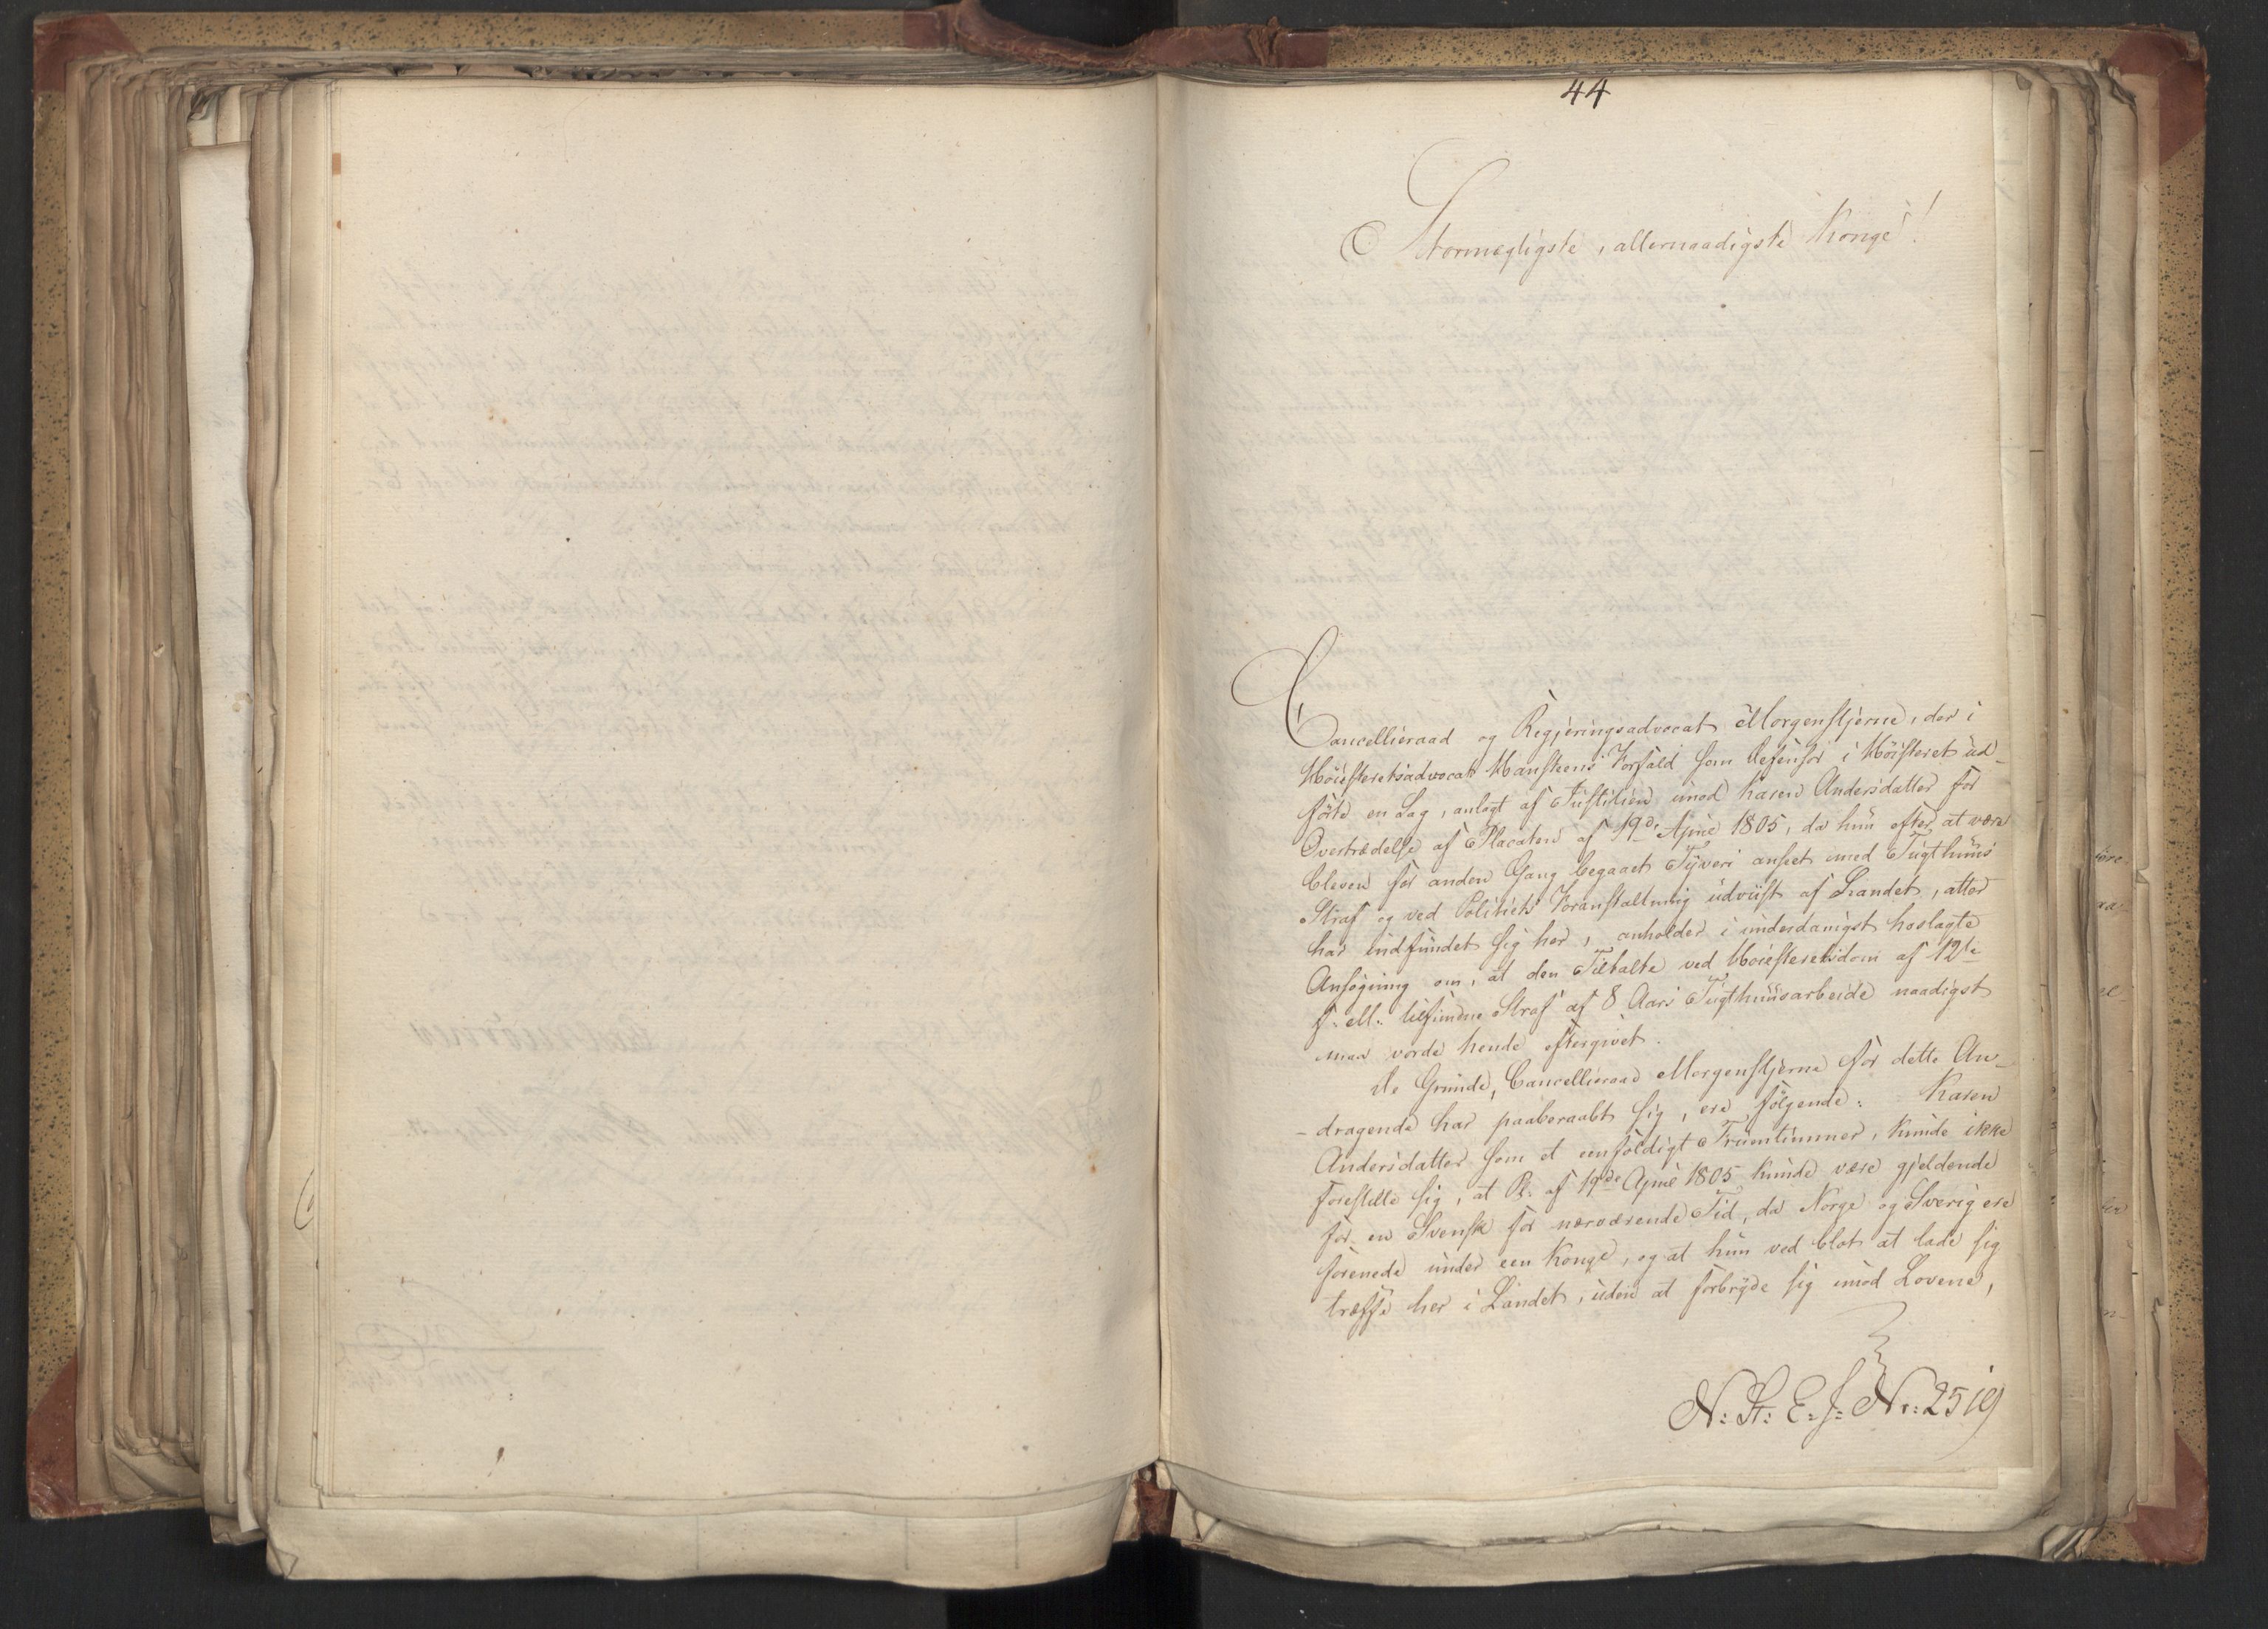 44
Stormægtigste, allernaadigste Konge!
Cancellieraad og Regjeringsadvocat Morgenstjerne, der i
Höiesteretsadvocat Hansteens Forfald som Defensor i Höisteret ud-
förte en Sag, anlagt af Justitien imod Karen Andersdatter for
Overtrædelse af Placaten af 19de April 1805, da hun efter at være
bleven for anden Gang begaaet Tyveri anseet med Tugthuus
Straf og ved Politiets Foranstaltning udviist af Landet, atter
har indfundet sig her, anholder i underdanigst hoslagte
Ansögning om, at den Tiltalte ved Höiesteretsdom af 12te
f: M: tilfundne Straf af 8 Aars Tugthuusarbeide naadigst
maa vorde hende eftergivet.
De Grunde, Cancellieraad Morgenstjerne for dette An-
-dragende har paaberaabt sig, ere fölgende: Karen
Andersdatter som et eenfoldigt Fruentimmer, kunde ikke
forestille sig, at Pl: af 19de April 1805 kunde være gjeldende
for en Svensk for nærværende Tid, da Norge og Sverig ere
forenede under een Konge, og at hun ved blot at lade sig
træffe her i Landet, uden at forbryde sig imod Lovene,
N: St: E: J: Nr: 2519